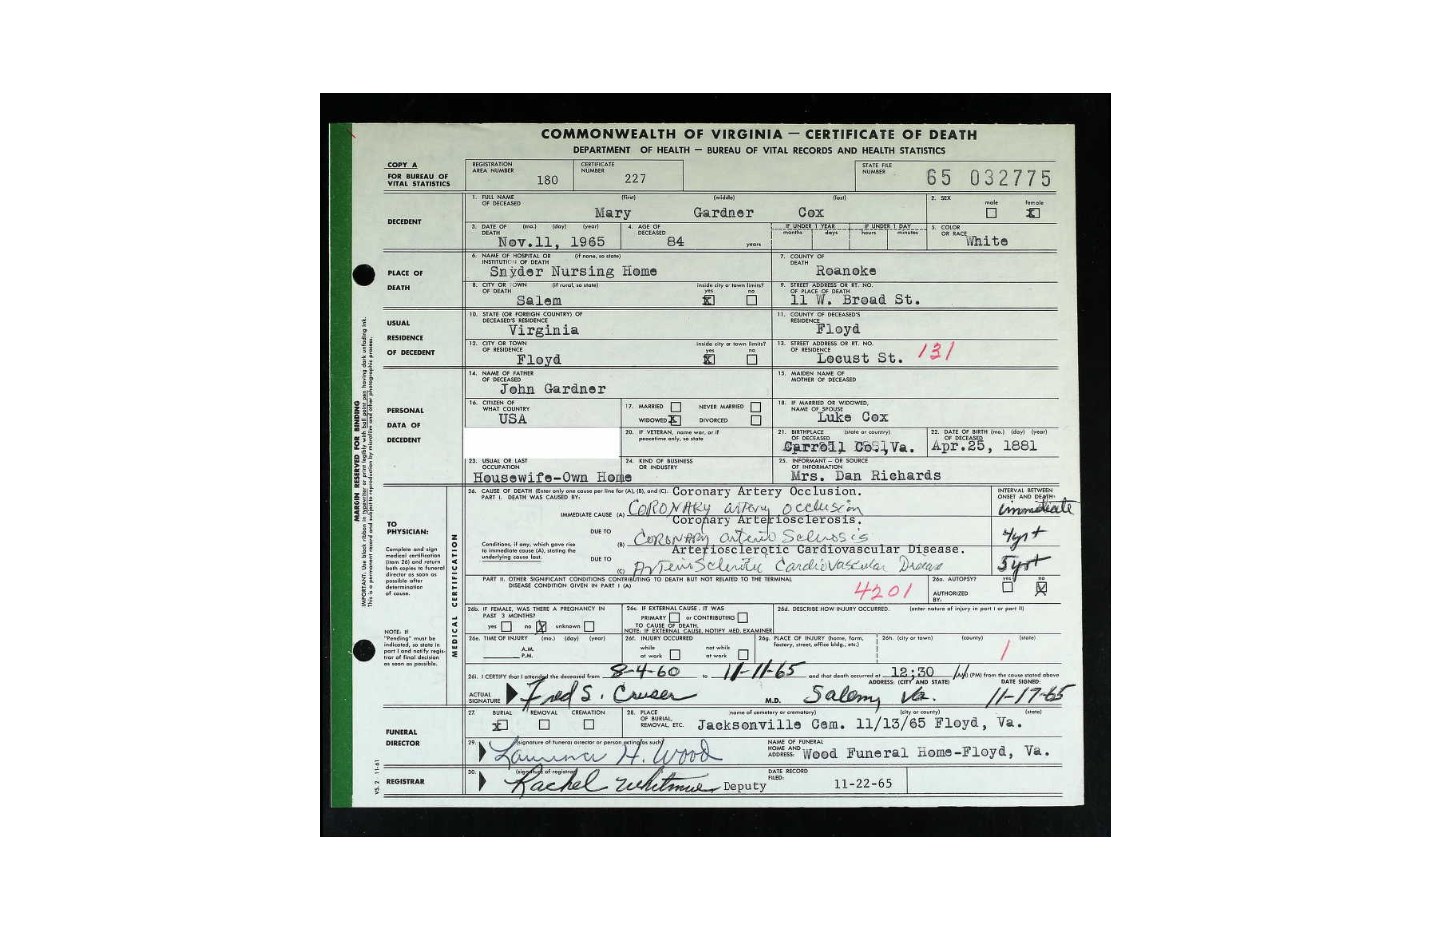 COMMONWEALTH OF VIRGINIA — CERTIFICATE OF DEATH
DEPARTMENT OF HEALTH — BUREAU OF VITAL RECORDS AND HEALTH STATISTICS
COPY A
FOR BUREAU OF VITAL STATISTICS
REGISTRATION AREA NUMBER 180
CERTIFICATE NUMBER 227
STATE FILE NUMBER 65 032775
DECEDENT
1. FULL NAME OF DECEASED (first) (middle) (last)
Mary Gardner Cox
2. SEX male female X
3. DATE OF DEATH (mo.) (day) (year)
Nov.11, 1965
4. AGE OF DECEASED 84 years
IF UNDER 1 YEAR months days
IF UNDER 1 DAY hours minutes
5. COLOR OR RACE White
PLACE OF DEATH
6. NAME OF HOSPITAL OR INSTITUTION OF DEATH (if none, so state)
Snyder Nursing Home
7. COUNTY OF DEATH
Roanoke
8. CITY OR TOWN OF DEATH (if rural, so state)
Salem
inside city or town limits? yes X no
9. STREET ADDRESS OR RT. NO. OF PLACE OF DEATH
11 W. Broad St.
USUAL RESIDENCE OF DECEDENT
10. STATE (OR FOREIGN COUNTRY) OF DECEASED'S RESIDENCE
Virginia
11. COUNTY OF DECEASED'S RESIDENCE
Floyd
12. CITY OR TOWN OF RESIDENCE
Floyd
inside city or town limits? yes X no
13. STREET ADDRESS OR RT. NO. OF RESIDENCE
Locust St. 131
PERSONAL DATA OF DECEDENT
14. NAME OF FATHER OF DECEASED
John Gardner
15. MAIDEN NAME OF MOTHER OF DECEASED
16. CITIZEN OF WHAT COUNTRY
USA
17. MARRIED NEVER MARRIED
WIDOWED X DIVORCED
18. IF MARRIED OR WIDOWED, NAME OF SPOUSE
Luke Cox
20. IF VETERAN, name war, or if peacetime only, so state
21. BIRTHPLACE OF DECEASED (state or county)
Carroll Co., Va.
22. DATE OF BIRTH OF DECEASED (mo.) (day) (year)
Apr.25, 1881
23. USUAL OR LAST OCCUPATION
Housewife-Own Home
24. KIND OF BUSINESS OR INDUSTRY
25. INFORMANT — OR SOURCE OF INFORMATION
Mrs. Dan Richards
MARGIN RESERVED FOR BINDING
IMPORTANT: Use black ribbon in typewriter or print legibly with ball point pen having dark unfading ink.
This is a permanent record and subject to reproduction by microfilm and other photographic process.
TO PHYSICIAN:
Complete and sign medical certification (item 26) and return both copies to funeral director as soon as possible after determination of cause.
NOTE: If "Pending" must be indicated, so state in part I and notify registrar of final decision as soon as possible.
MEDICAL CERTIFICATION
26. CAUSE OF DEATH (Enter only one cause per line for (A), (B), and (C).
PART I. DEATH WAS CAUSED BY:
Coronary Artery Occlusion.
INTERVAL BETWEEN ONSET AND DEATH
IMMEDIATE CAUSE (A) CORONARY artery occlusion immediate
Coronary Arteriosclerosis.
DUE TO
(B) CORONARY arterio Sclerosis 4yr+
Conditions, if any, which gave rise to immediate cause (A), stating the underlying cause last.
Arteriosclerotic Cardiovascular Disease.
DUE TO
(C) ArterioSclerotic Cardiovascular Disease 5yr+
PART II. OTHER SIGNIFICANT CONDITIONS CONTRIBUTING TO DEATH BUT NOT RELATED TO THE TERMINAL DISEASE CONDITION GIVEN IN PART I (A)
4201
26a. AUTOPSY? yes no X
AUTHORIZED BY:
26b. IF FEMALE, WAS THERE A PREGNANCY IN PAST 3 MONTHS?
yes no X unknown
26c. IF EXTERNAL CAUSE, IT WAS
PRIMARY or CONTRIBUTING
TO CAUSE OF DEATH.
NOTE: IF EXTERNAL CAUSE, NOTIFY MED. EXAMINER
26d. DESCRIBE HOW INJURY OCCURRED. (enter nature of injury in part I or part II)
26e. TIME OF INJURY (mo.) (day) (year)
A.M.
P.M.
26f. INJURY OCCURRED
while at work not while at work
26g. PLACE OF INJURY (home, farm, factory, street, office bldg., etc.)
26h. (city or town) (county) (state)
1
26i. I CERTIFY that I attended the deceased from 8-4-60 to 11-11-65 and that death occurred at 12;30 (PM) from the cause stated above
ADDRESS: (CITY AND STATE) DATE SIGNED:
ACTUAL SIGNATURE Fred S. Cruser M.D. Salem, Va. 11-17-65
FUNERAL DIRECTOR
27. BURIAL X REMOVAL CREMATION
28. PLACE OF BURIAL, REMOVAL, ETC. (name of cemetery or crematory) (city or county) (state)
Jacksonville Cem. 11/13/65 Floyd, Va.
29. (signature of funeral director or person acting as such)
H. Wood
NAME OF FUNERAL HOME AND ADDRESS:
Wood Funeral Home-Floyd, Va.
REGISTRAR
30. (signature of registrar)
Rachel Whitmire Deputy
DATE RECORD FILED:
11-22-65
VS. 2 11-61